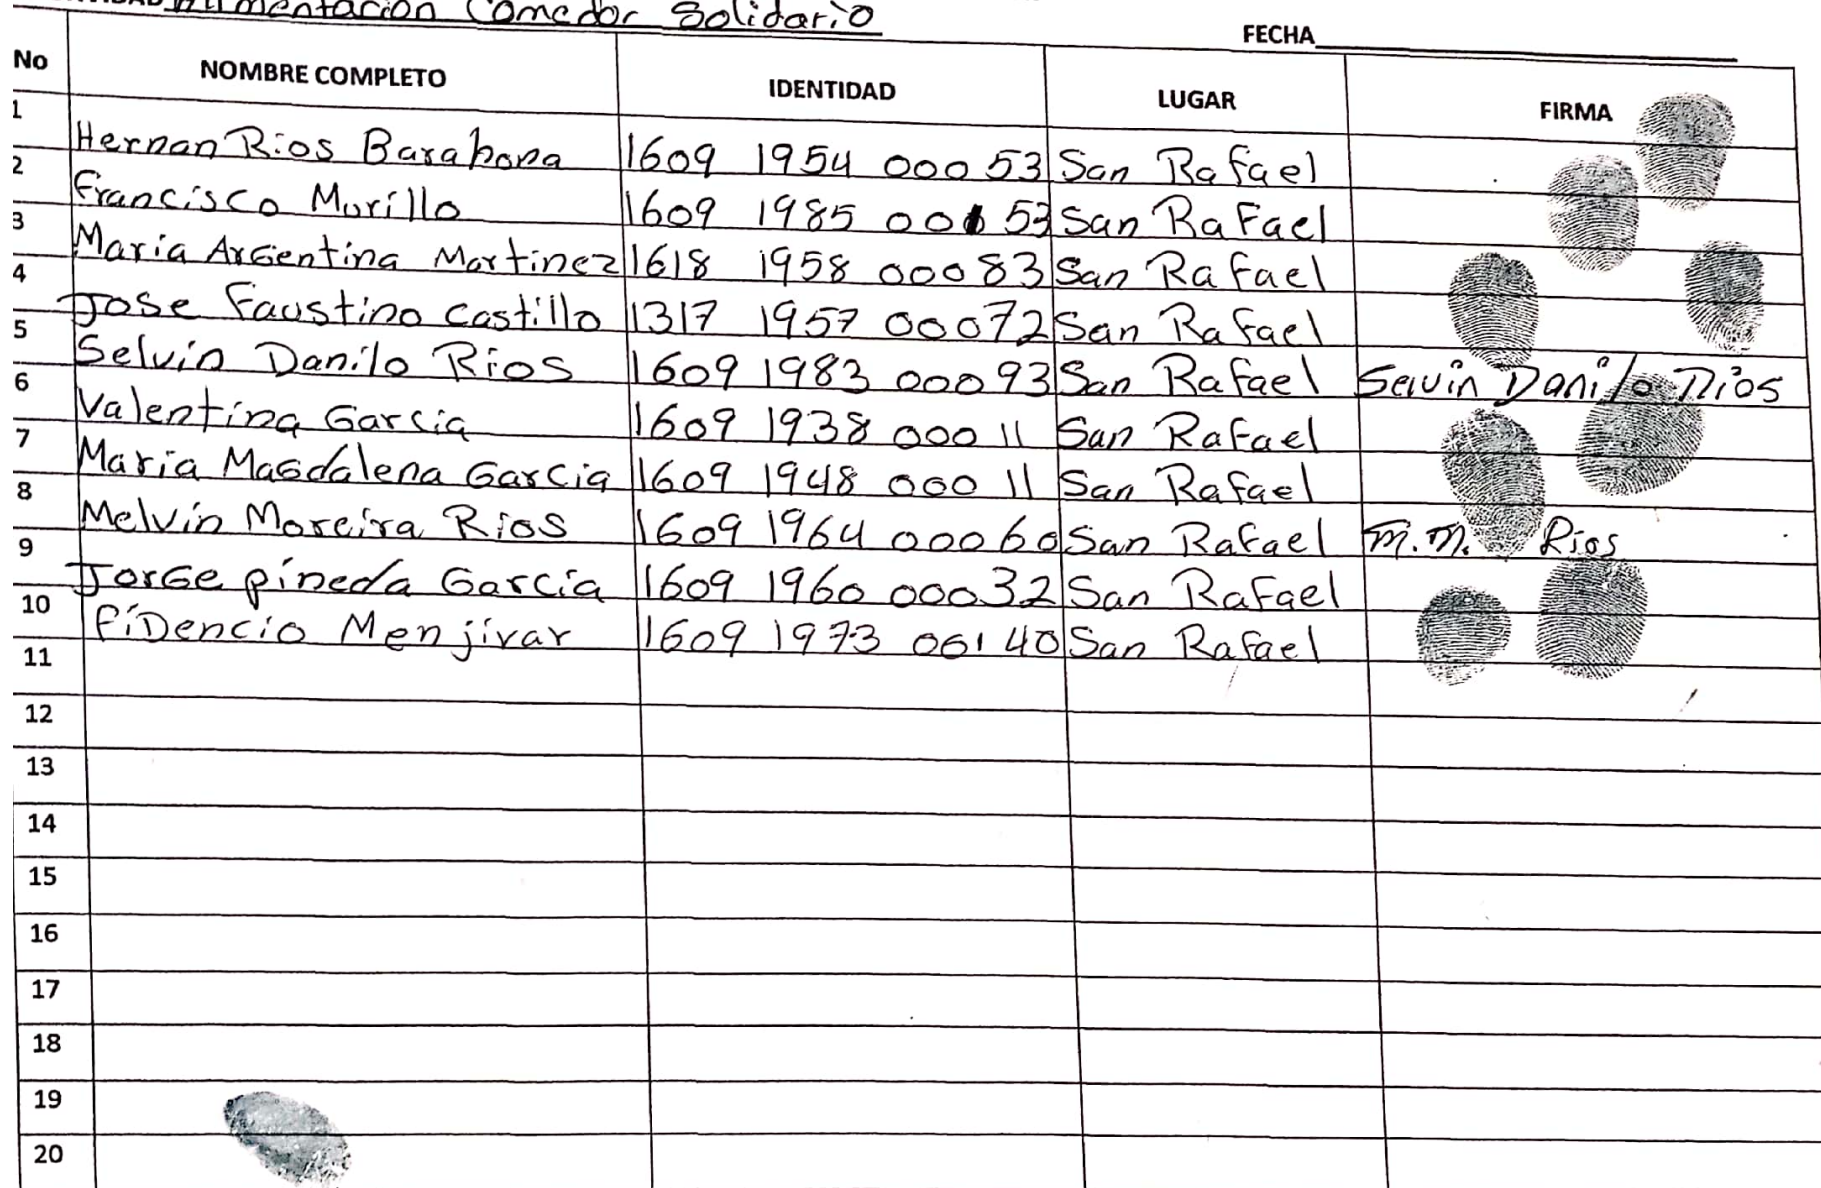 Alimentacion Comedor Solidario
FECHA
No NOMBRE COMPLETO IDENTIDAD LUGAR FIRMA
1 Hernan Rios Barahona 1609 1954 00053 San Rafael
2 Francisco Murillo 1609 1985 San Rafael
3 Maria Argentina Martinez 1618 1958 00083 San Rafael
4 Jose Faustino Castillo 1317 1957 00072 San Rafael
5 Selvin Danilo Rios 1609 1983 00093 San Rafael Selvin Danilo Rios
6 Valentina Garcia 1609 1938 00011 San Rafael
7 Maria Magdalena Garcia 1609 1948 00011 San Rafael
8 Melvin Moreira Rios 1609 1964 00060 San Rafael M.M. Rios
9 Jorge pineda Garcia 1609 1960 00032 San Rafael
10 FiDencio Menjivar 1609 1973 00140 San Rafael
11
12
13
14
15
16
17
18
19
20